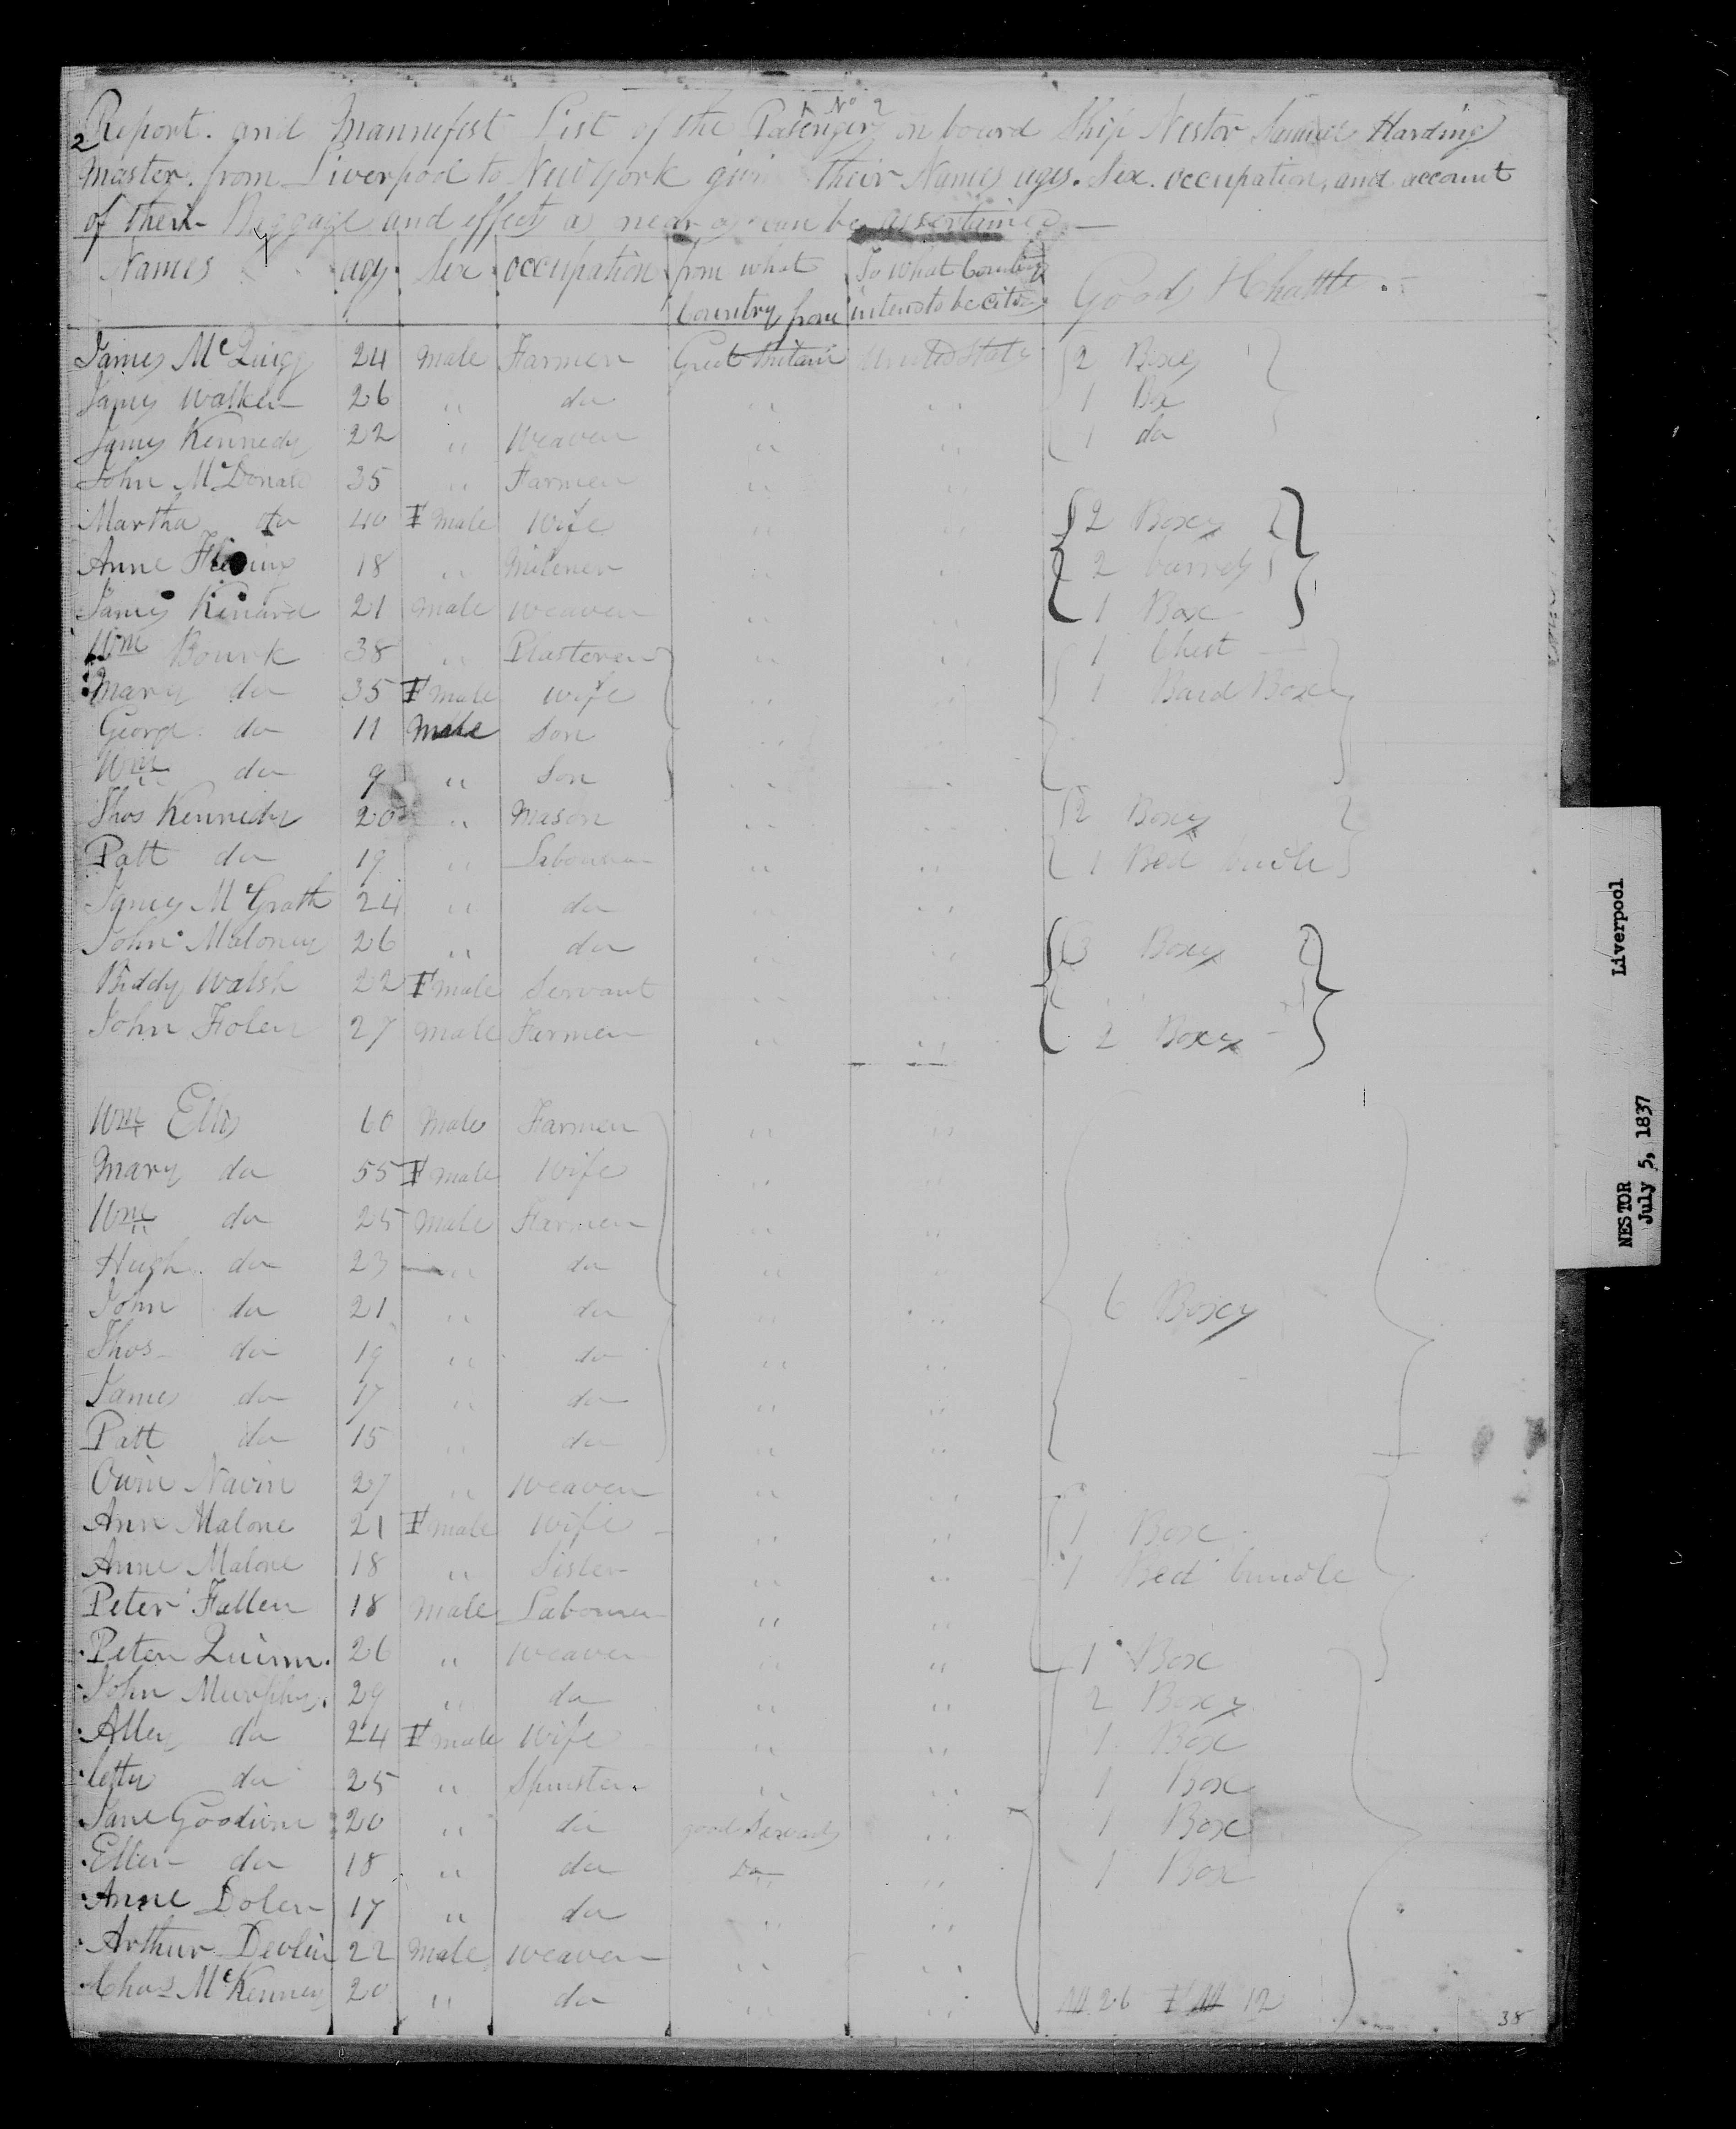 No 2
2 Report. and Mannefest List of the Pasengers on board Ship Nestor Samuel Harding
Master. from Liverpool to New york givin their Names ages. Sex. occupation, and account
of their Baggage and effects as near as can be assertained
Names ages Sex occupation from what Country from To what Country intends to be citiz Goods & Chattle.
James McQuigg 24 Male Farmer Great Britain United States 2 Boxes
James Walker 26 " do " " 1 Box
James Kennedy 22 " Weaver " " 1 do
John McDonald 35 " Farmer " "
Martha do 40 Fmale Wife " " 2 Boxes
Anne 18 " Milener " " 2 barrels
James Kinard 21 male Weaver " " 1 Box
Wm Bourk 38 " Plasterer " " 1 Chest
Mary do 35 Fmale Wife " " 1 Band Boxes
George do 11 Male Son " "
Wm do 9 " Son " "
Thos Kennedy 20 " Mason " " 2 Boxes
Patt do 19 " Labourer " " 1 Bed bundle
James McGrath 24 " do " "
John Maloney 26 " do " " 3 Boxes
Biddy Walsh 22 Fmale Servant " "
John Folen 27 Male Farmer " " 2 Boxes
Wm Ellis 60 Male Farmer " "
Mary do 55 Fmale Wife " "
Wm do 25 Male Farmer " "
Hugh do 23 " do " "
John do 21 " do " " 6 Boxes
Thos do 19 " do " "
James do 17 " do " "
Patt do 15 " do " "
Owin Navin 27 " Weaver " "
Ann Malone 21 Fmale Wife " " 1 Box
Anne Malone 18 " Sister " " 1 Bed bundle
Peter Fallen 18 Male Labourer " "
Peter Quinn. 26 " Weaver " " 1 Box
John Murphy. 29 " do " " 2 Boxes
Alley do 24 Fmale Wife " " 1 Box
Letty do 25 " Spinster " " 1 Box
Jane Goodwin 20 " do good Servants " 1 Box
Ellen do 18 " do Do " 1 Box
Anne Dolen 17 " do " "
Arthur Devlin 22 Male Weaver " "
Chas McKenney 20 " do " " M 26 FM 12
38
Liverpool
NESTOR
July 5, 1837